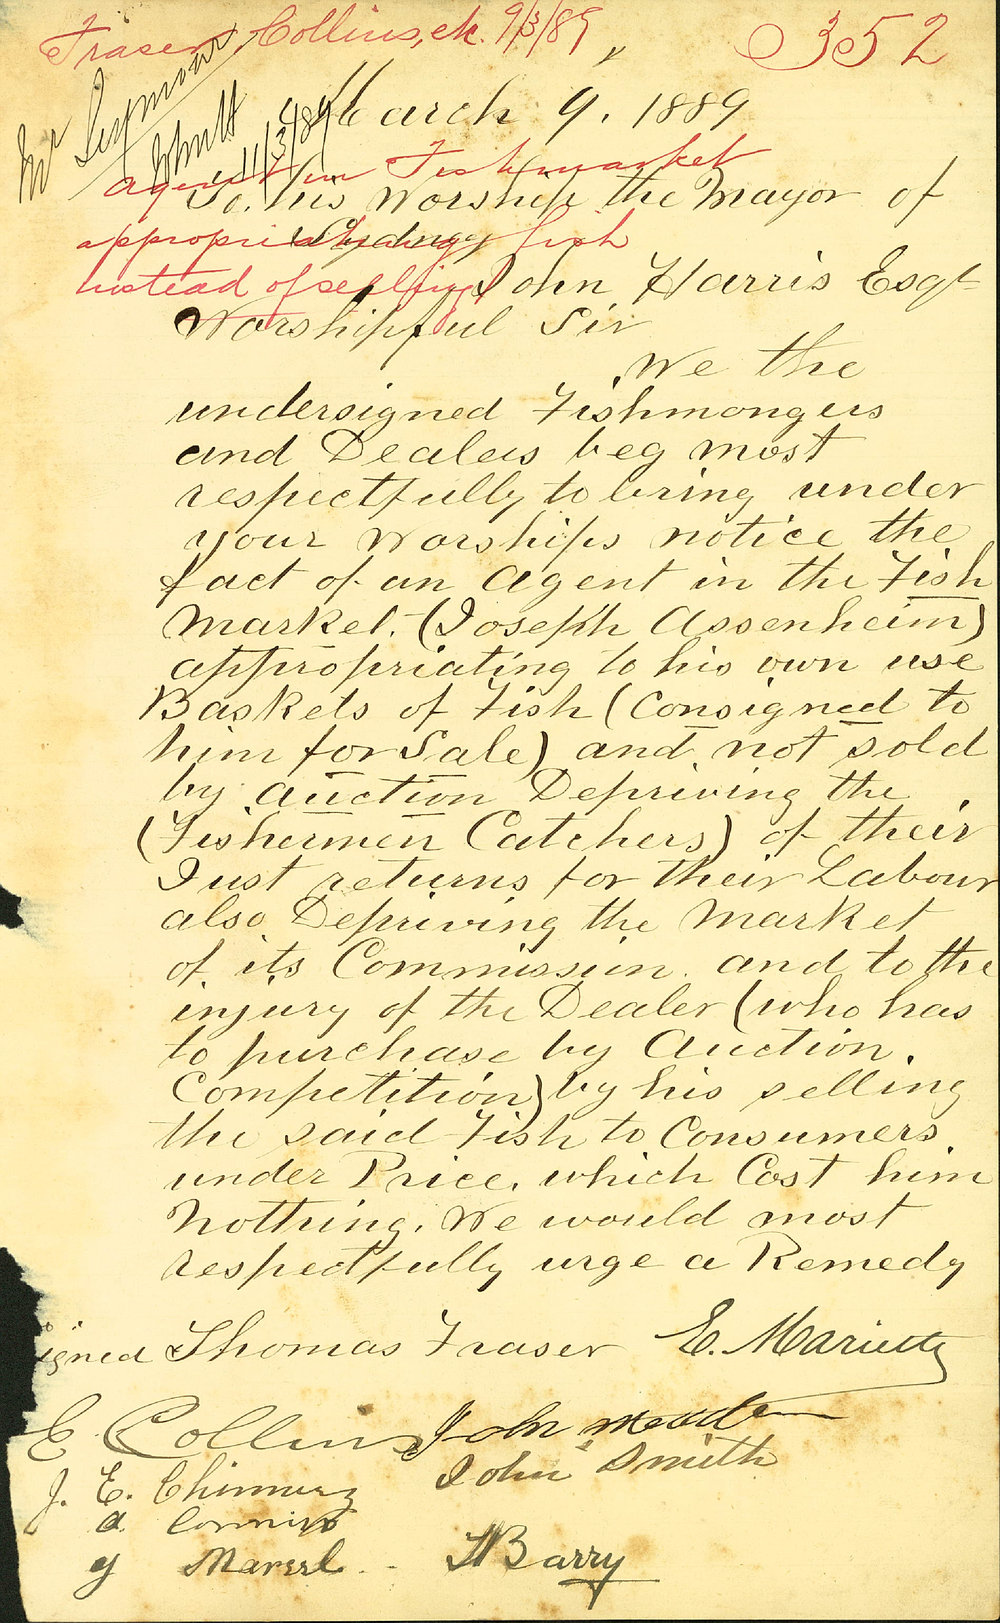 Fraser, Collins, &c. 9/3/89
352
Mr Seymour
11/3/89
March 9. 1889
Agent in Fishmarket
To. his Worship the Mayor of
appropriating fish
Sydney
instead of selling
John Harris Esqr
Worshipful Sir
We the
undersigned Fishmongers
and Dealers beg most
respectfully to bring under
your Worships notice the
fact of an Agent in the Fish
Market. (Joseph Assenheim)
appropriating to his own use
Baskets of Fish (Consigned to
him for Sale) and not sold
by Auction Depriving the
(Fishermen Catchers) of their
Just returns for their Labour
also Depriving the Market
of its Commission. and to the
injury of the Dealer (who has
to purchase by Auction.
Competition) by his selling
the said Fish to Consumers
under Price. which Cost him
Nothing. We would most
respectfully urge a Remedy
igned Thomas Fraser E. Marietty
E Collins John
J. E. John Smith
A.
G H Barry